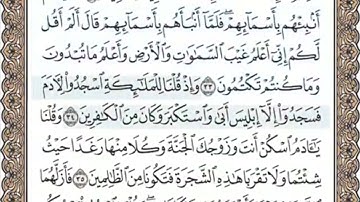 أَنۢبِئْهُم بِأَسْمَآئِهِمْ ۖ فَلَمَّآ أَنۢبَأَهُم بِأَسْمَآئِهِمْ قَالَ أَلَمْ أَقُل
لَّكُمْ إِنِّىٓ أَعْلَمُ غَيْبَ ٱلسَّمَـٰوَٰتِ وَٱلْأَرْضِ وَأَعْلَمُ مَا تُبْدُونَ
وَمَا كُنتُمْ تَكْتُمُونَ ٣٣ وَإِذْ قُلْنَا لِلْمَلَـٰٓئِكَةِ ٱسْجُدُوا۟ لِـَٔادَمَ
فَسَجَدُوٓا۟ إِلَّآ إِبْلِيسَ أَبَىٰ وَٱسْتَكْبَرَ وَكَانَ مِنَ ٱلْكَـٰفِرِينَ ٣٤ وَقُلْنَا
يَـٰٓـَٔادَمُ ٱسْكُنْ أَنتَ وَزَوْجُكَ ٱلْجَنَّةَ وَكُلَا مِنْهَا رَغَدًا حَيْثُ
شِئْتُمَا وَلَا تَقْرَبَا هَـٰذِهِ ٱلشَّجَرَةَ فَتَكُونَا مِنَ ٱلظَّـٰلِمِينَ ٣٥ فَأَزَلَّهُمَا